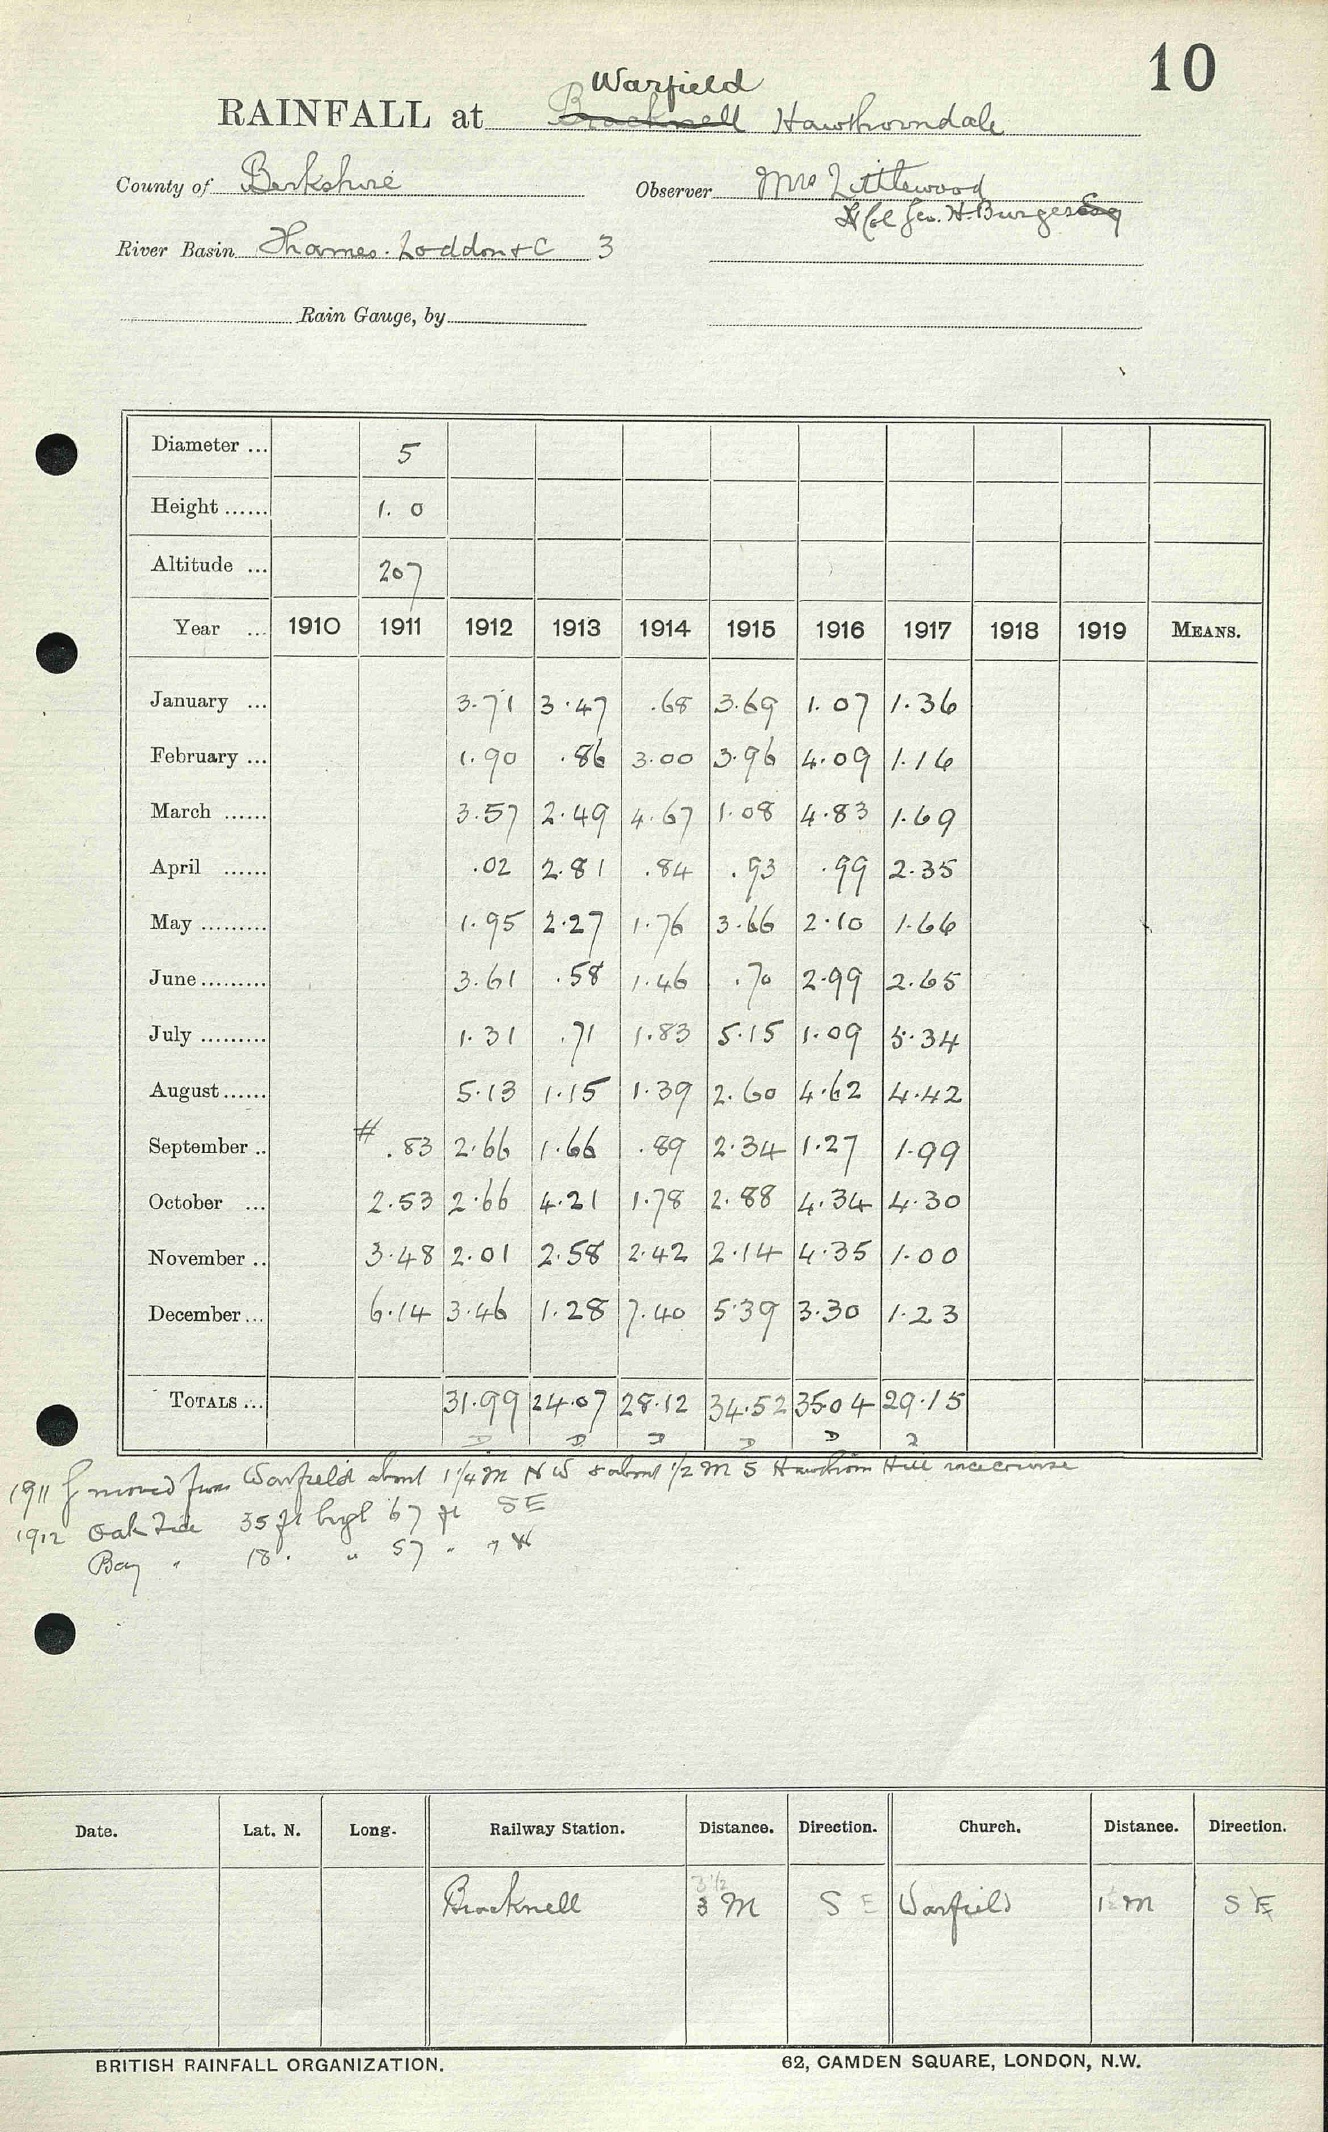 10
Warfield
RAINFALL at Bracknell Hawthorndale
County of Berkshire Observer Mrs Littlewood
Col Geo. H. Burges Esq
River Basin Thames. Loddon & C 3
Rain Gauge, by
Diameter ... 5
Height ...... 1. 0
Altitude ... 207
Year ... 1910 1911 1912 1913 1914 1915 1916 1917 1918 1919 MEANS.
January ... 3.71 3.47 .68 3.69 1.07 1.36
February ... 1.90 .86 3.00 3.96 4.09 1.16
March ...... 3.57 2.49 4.67 1.08 4.83 1.69
April ...... .02 2.81 .84 .93 .99 2.35
May ......... 1.95 2.27 1.76 3.66 2.10 1.66
June ......... 3.61 .58 1.46 .70 2.99 2.65
July ......... 1.31 .71 1.83 5.15 1.09 5.34
August ...... 5.13 1.15 1.39 2.60 4.62 4.42
September .. # .83 2.66 1.66 .89 2.34 1.27 1.99
October ... 2.53 2.66 4.21 1.78 2.88 4.34 4.30
November .. 3.48 2.01 2.58 2.42 2.14 4.35 1.00
December ... 6.14 3.46 1.28 7.40 5.39 3.30 1.23
TOTALS ... 31.99 24.07 28.12 34.52 35.04 29.15
D D D D D
1911 g moved from Warfield about 1 1/4 M NW & about 1/2 M S Hawthorn Hill racecourse
1912 Oak Tree 35 ft high 67 ft SE
Bay " 18 " " 57 " " W
Date. Lat. N. Long. Railway Station. Distance. Direction. Church. Distance. Direction.
3 1/2
Bracknell 3 M S E Warfield 1 1/2 M S E
BRITISH RAINFALL ORGANIZATION. 62, CAMDEN SQUARE, LONDON, N.W.